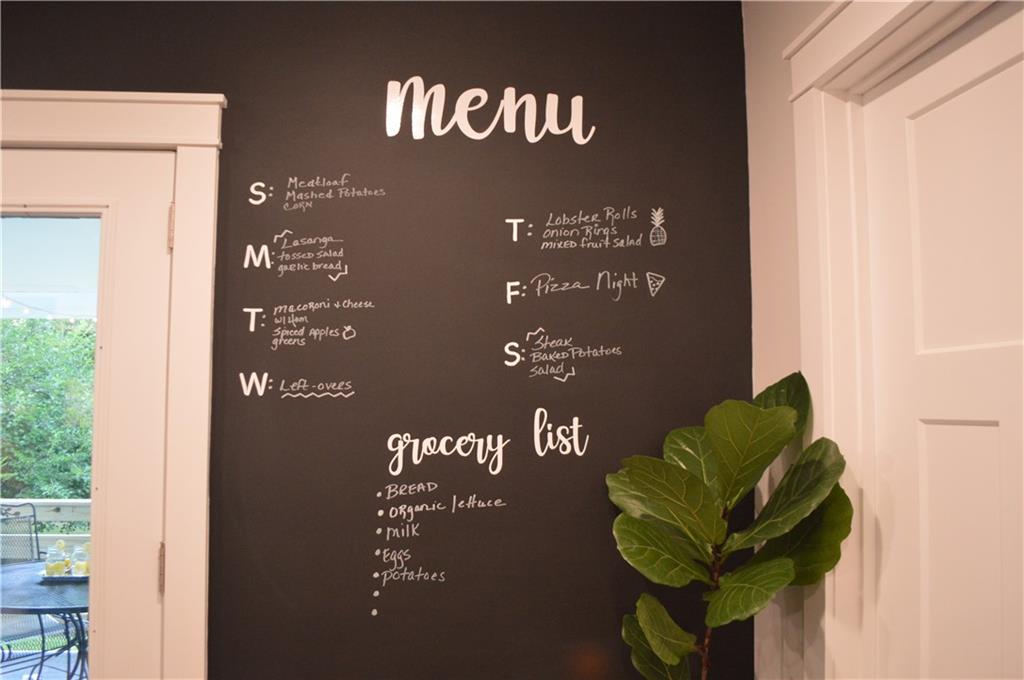 menu
S: Meatloaf
Mashed Potatoes
CORN
M: Lasanga
tossed salad
garlic bread
T: macoroni + cheese
w/ Ham
Spiced Apples
greens
W: Left-overs
T: Lobster Rolls
onion Rings
mixed fruit salad
F: Pizza Night
S: Steak
BAKED Potatoes
Salad
grocery list
• BREAD
• organic lettuce
• milk
• Eggs
• potatoes
•
•